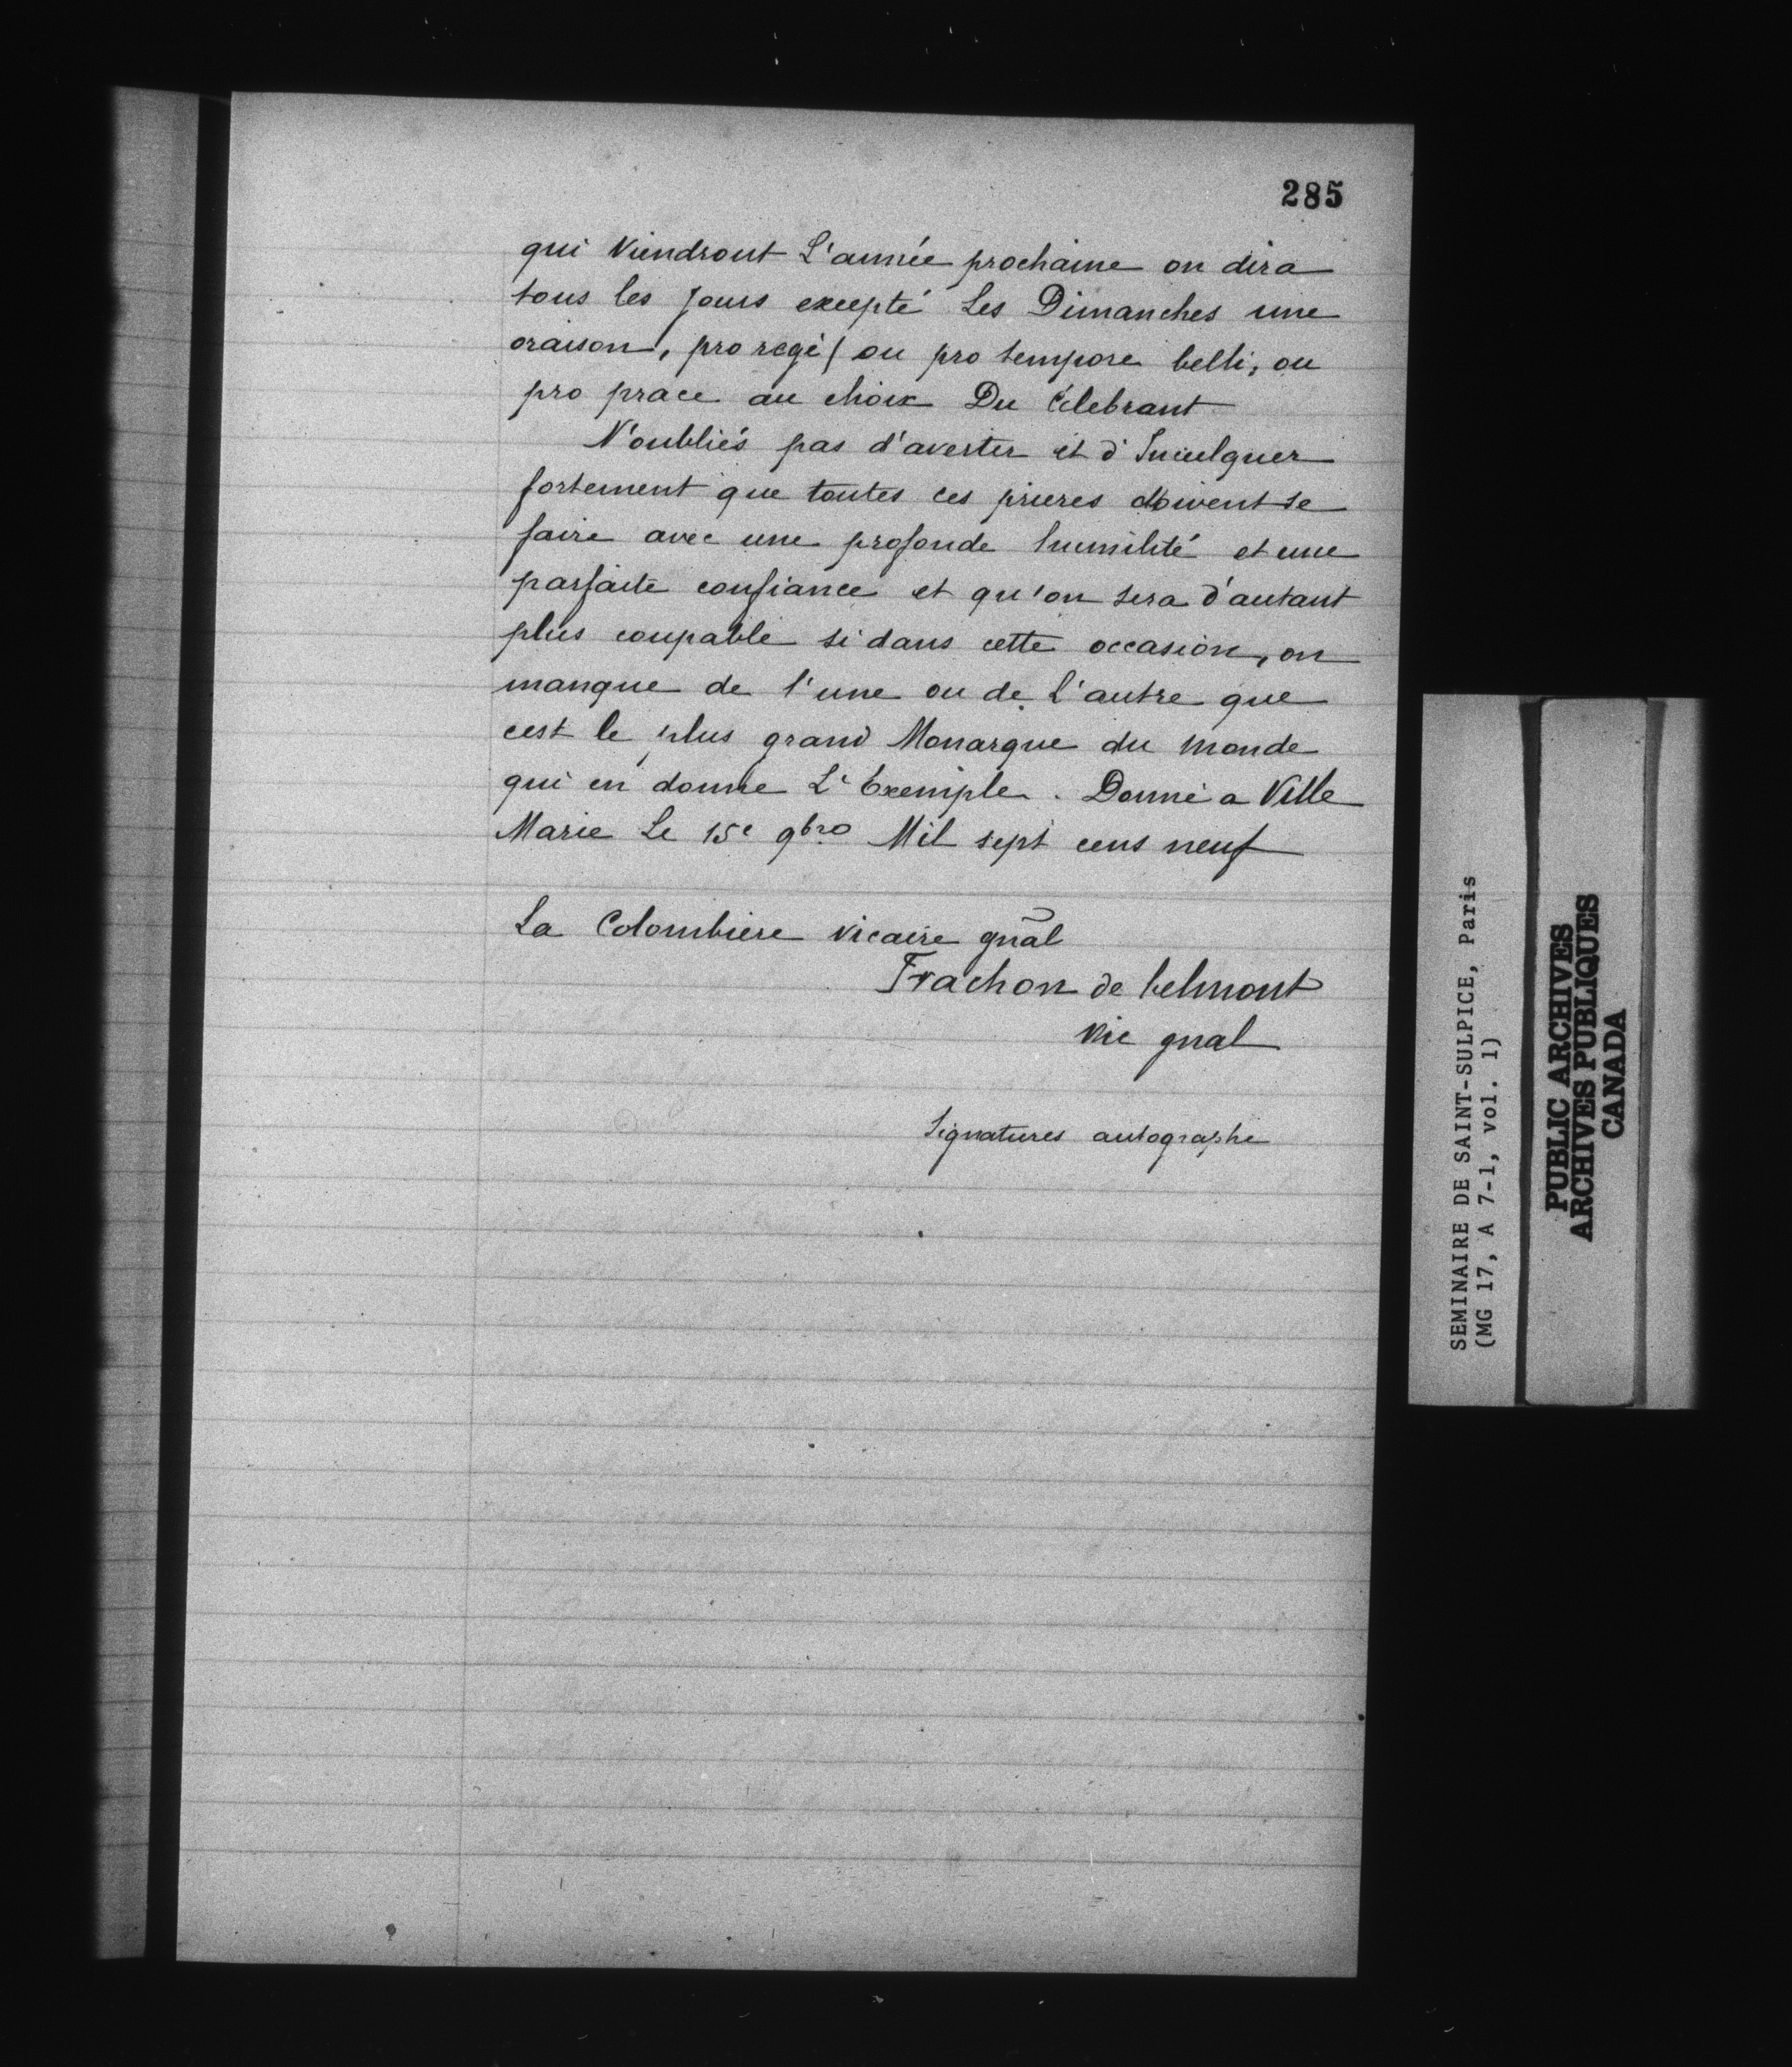 285
qui Viendront L'année prochaine on dira
tous les Jours excepté Les Dimanches une
oraison, pro rege/ ou pro tempore belli, ou
pro prace au choix Du Célebrant
N'oubliés pas d'avertir et d'Inculquer
fortement que toutes ces prieres doivent se
faire avec une profonde humilité et une
parfaite confiance et qu'on sera d'autant
plus coupable si dans cette occasion, on
manque de l'une ou de L'autre que
cest le plus grand Monarque du monde
qui en donne L'Exemple. Donné a Ville
Marie Le 15e 9bro Mil sept cens neuf
La Colombiere vicaire gnāl
Frachon de belmont
vic gnal
Signatures autographe
SEMINAIRE DE SAINT-SULPICE, Paris
(MG 17, A 7-1, vol. 1)
PUBLIC ARCHIVES
ARCHIVES PUBLIQUES
CANADA